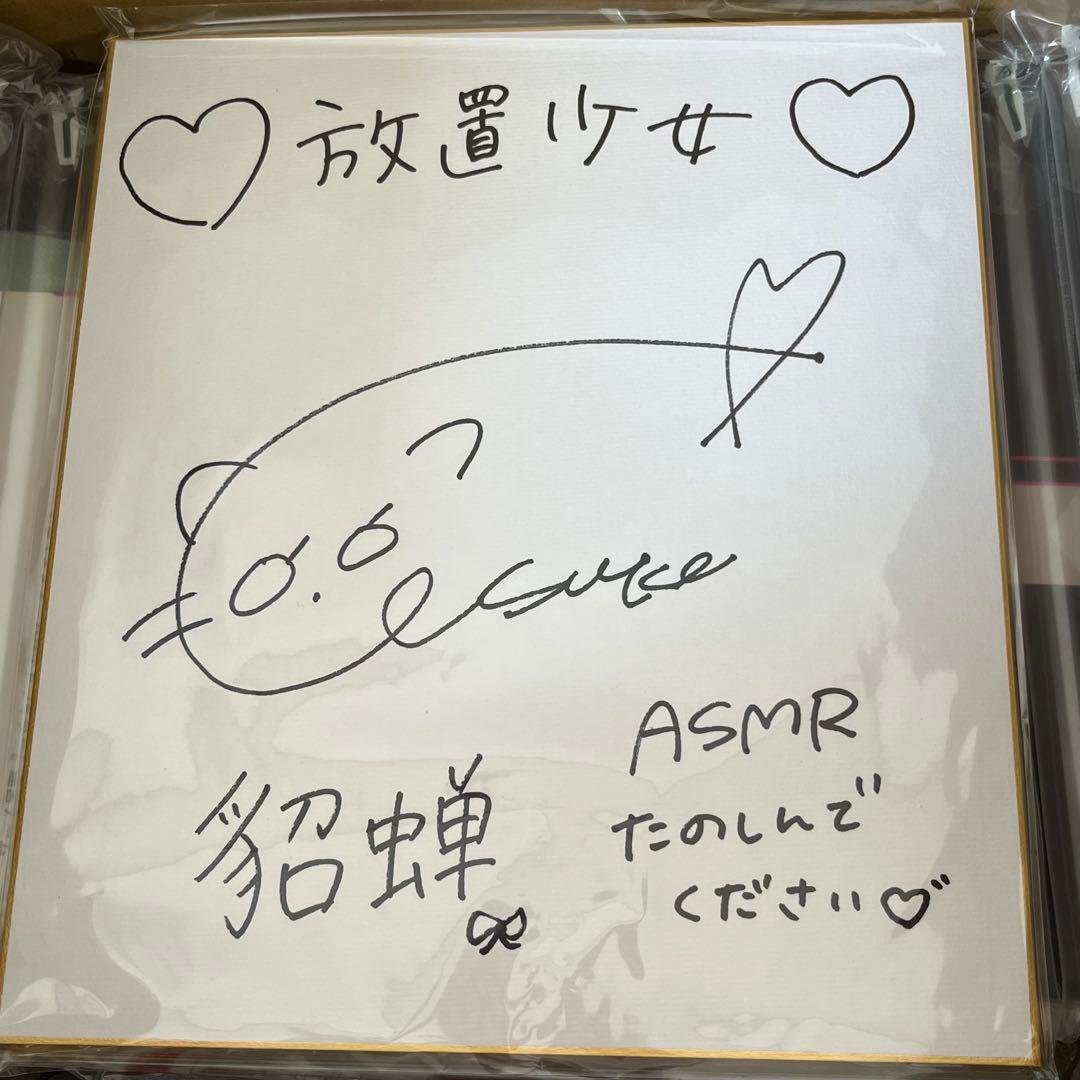 ♡放置少女♡
貂蝉
ASMR
たのしんで
ください♡